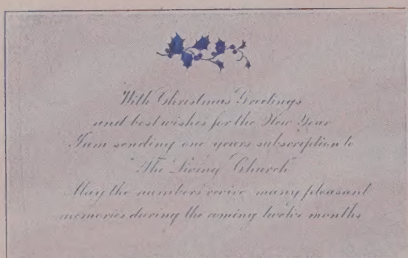 With Christmas Greetings
and best wishes for the New Year
I am sending one years subscription to
"The Living Church"
May the numbers revive many pleasant
memories during the coming twelve months